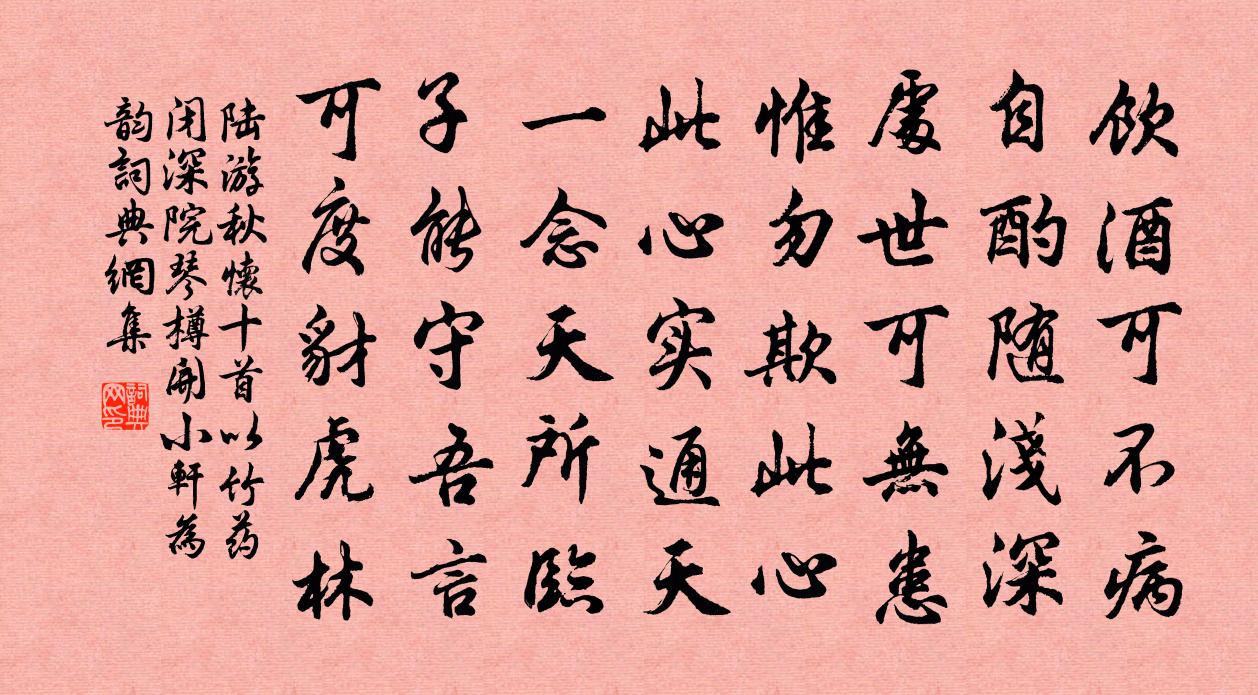 飲酒可不病
自酌随淺深
處世可無患
惟勿欺此心
此心实通天
一念天所臨
子能守吾言
可度豺虎林
陆游秋懷十首以竹药
闭深院琴樽開小軒為
韵詞典網集
詞典网印